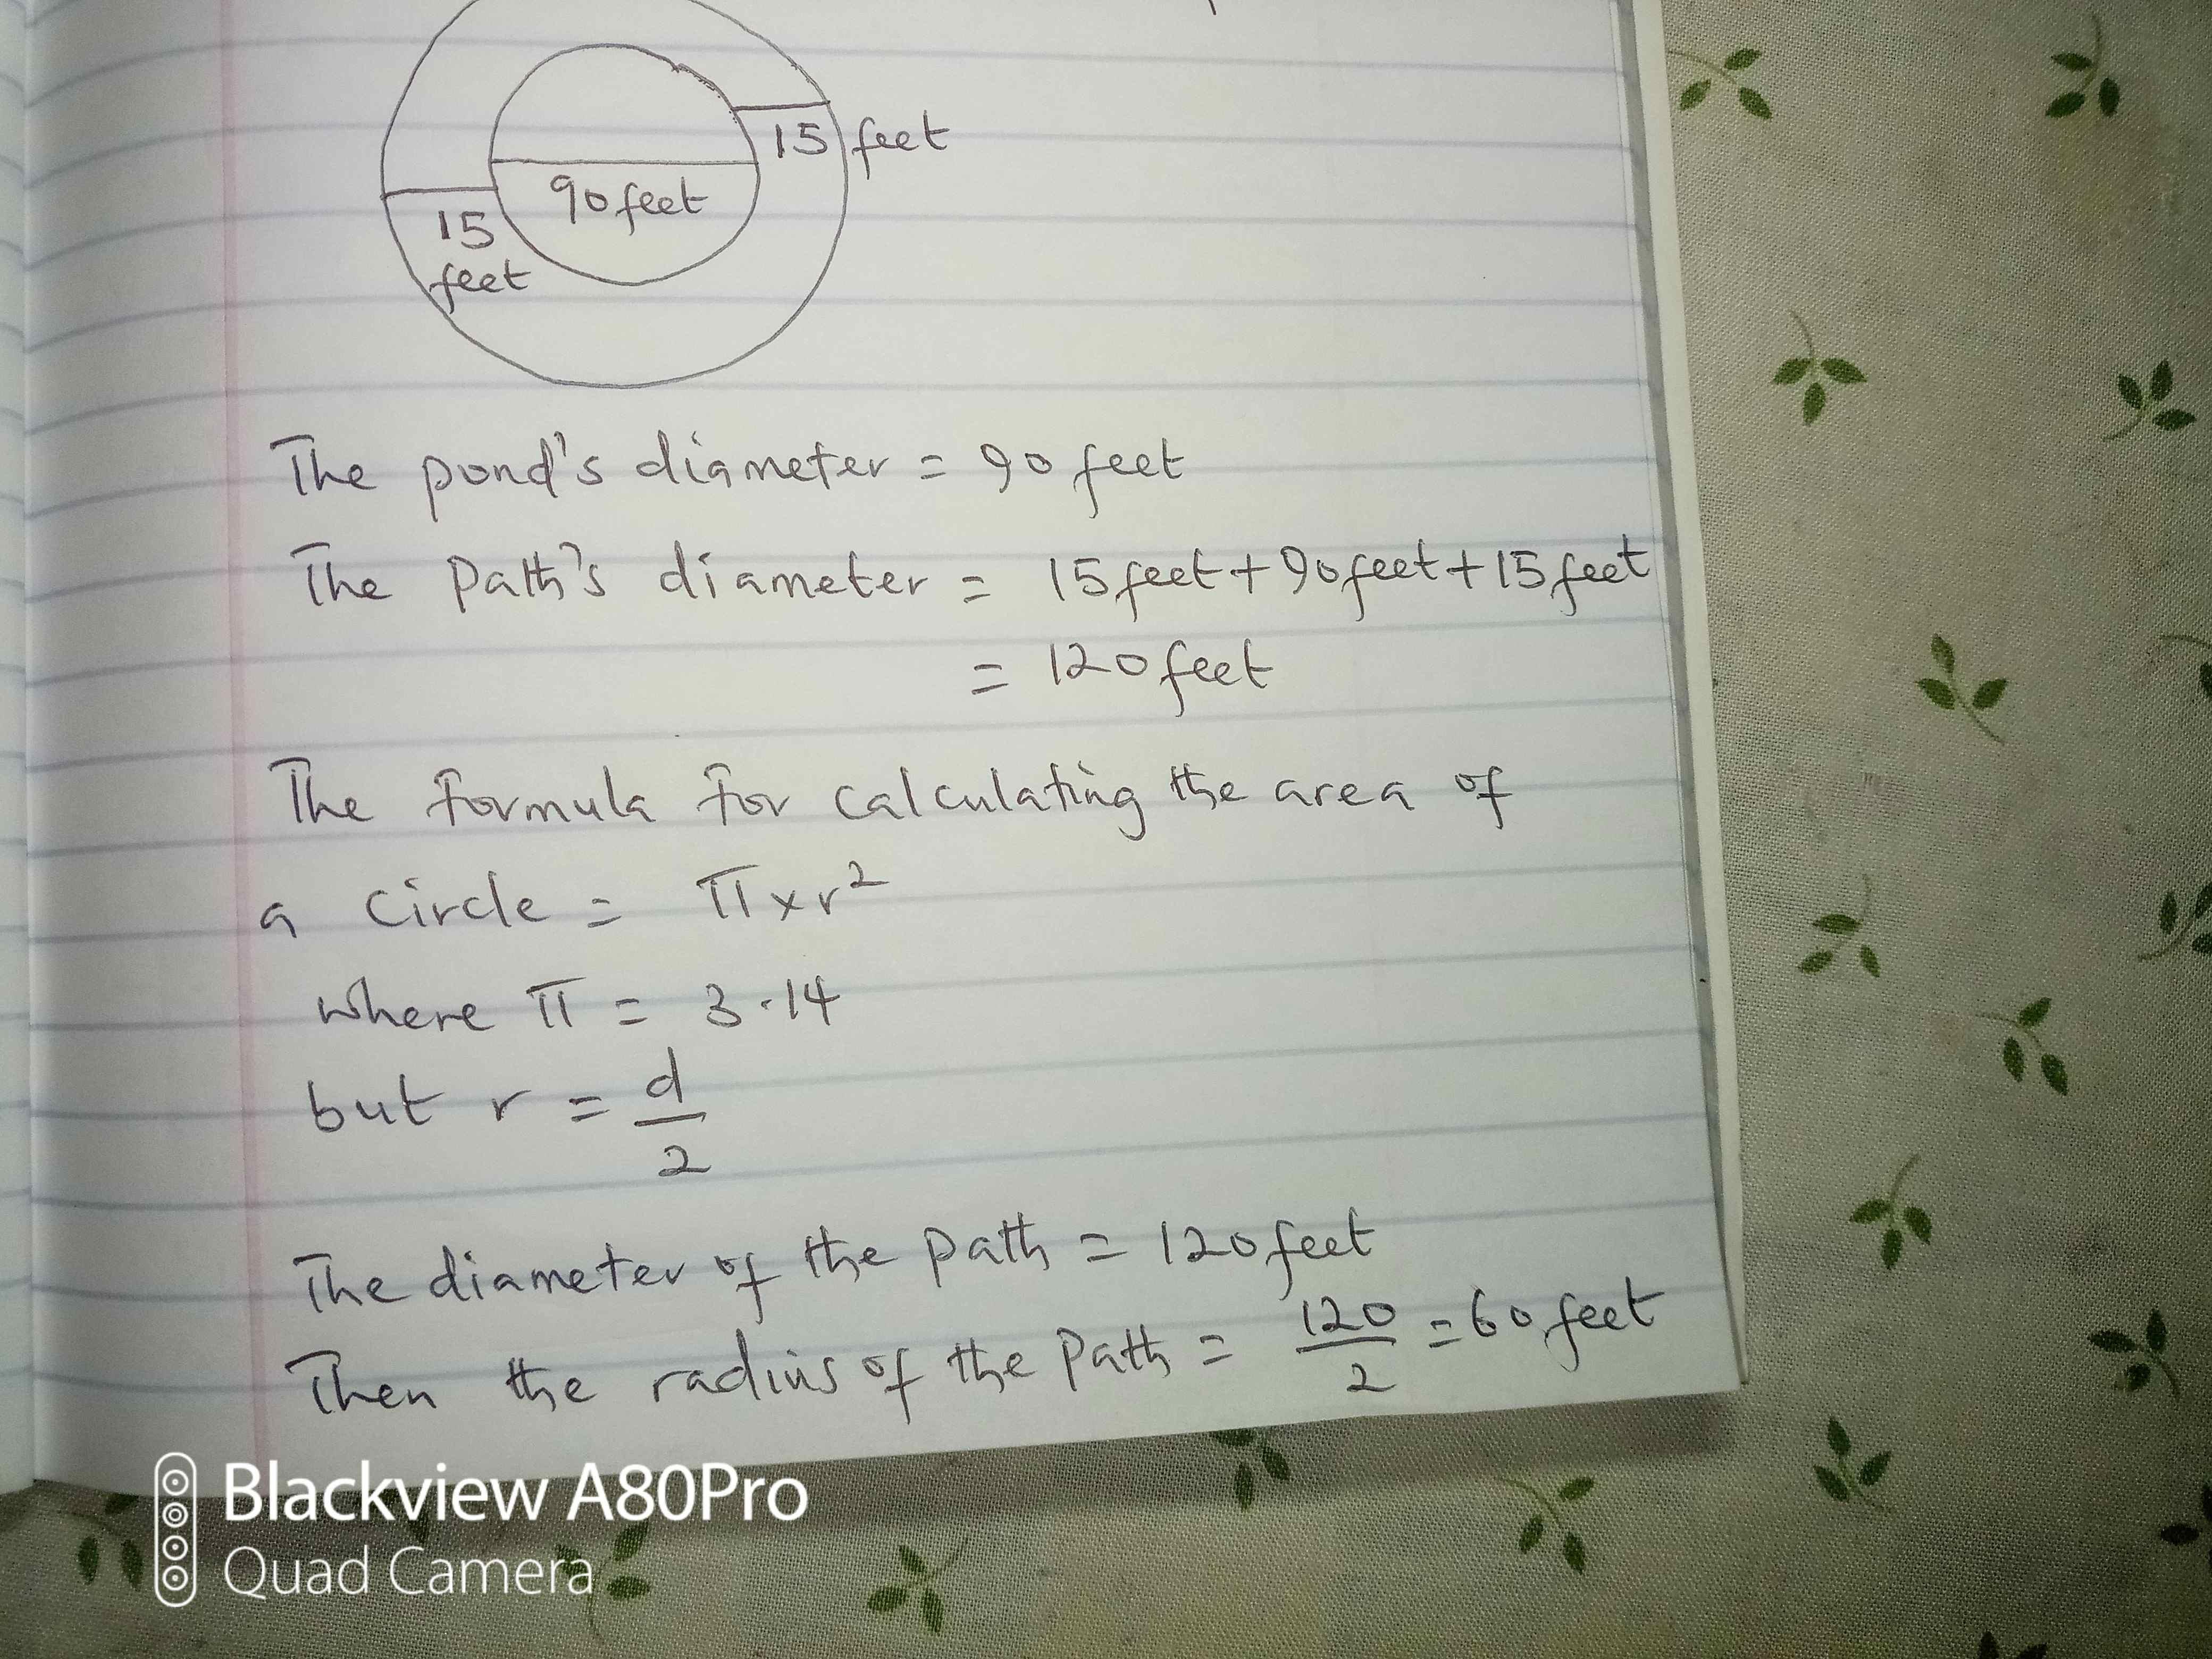 15 feet
90 feet
15
feet
The pond's diameter = 90 feet
The Path's diameter = 15 feet + 90 feet + 15 feet
= 120 feet
The formula for calculating the area of
a circle = π × r²
where π = 3.14
but r = d/2
The diameter of the path = 120 feet
Then the radius of the Path = 120/2 = 60 feet
Blackview A80Pro
Quad Camera